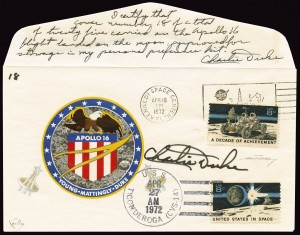 I certify that
cover number 18 of a total
of twenty five carried on the Apollo 16
flight landed on the moon
storage in my personal preference kit.
Charlie Duke
18
KENNEDY SPACE CENTER
APR 16
1972
APOLLO 16
YOUNG · MATTINGLY · DUKE
8c
A DECADE OF ACHIEVEMENT
Charlie Duke
U.S.S.
27
AM
1972
TICONDEROGA (CVS-14)
8c
UNITED STATES IN SPACE